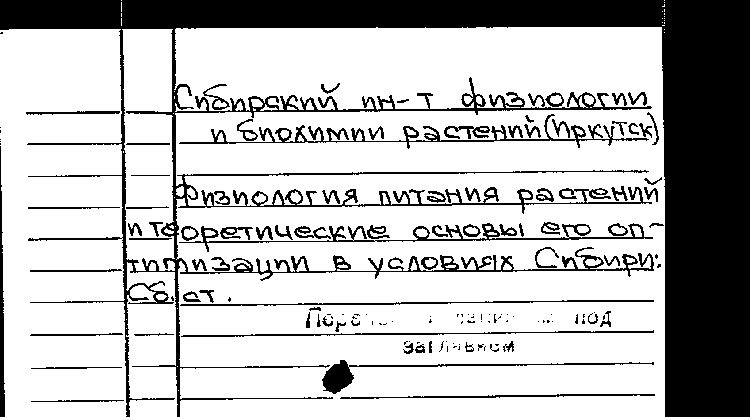 Сибирский ин-т физиологии
и биохимии растений (Иркутск)
Физиология питания растений
и теоретические основы его оп-
тимизации в условиях Сибири:
Сб. ст.
под
заглавием